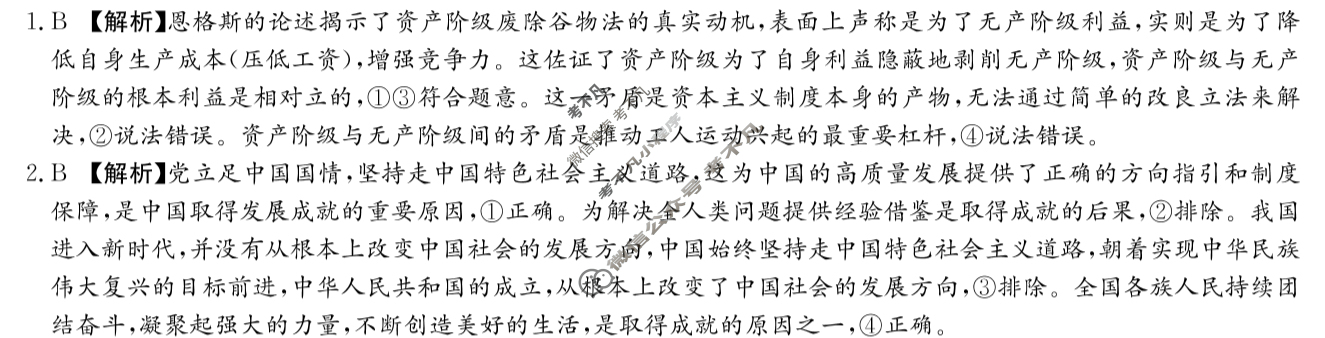 1. B 【解析】恩格斯的论述揭示了资产阶级废除谷物法的真实动机,表面上声称是为了无产阶级利益,实则是为了降
低自身生产成本(压低工资),增强竞争力。这佐证了资产阶级为了自身利益隐蔽地剥削无产阶级,资产阶级与无产
阶级的根本利益是相对立的,①③符合题意。这一矛盾是资本主义制度本身的产物,无法通过简单的改良立法来解
决,②说法错误。资产阶级与无产阶级间的矛盾是推动工人运动兴起的最重要杠杆,④说法错误。
2. B 【解析】党立足中国国情,坚持走中国特色社会主义道路,这为中国的高质量发展提供了正确的方向指引和制度
保障,是中国取得发展成就的重要原因,①正确。为解决全人类问题提供经验借鉴是取得成就的后果,②排除。我国
进入新时代,并没有从根本上改变中国社会的发展方向,中国始终坚持走中国特色社会主义道路,朝着实现中华民族
伟大复兴的目标前进,中华人民共和国的成立,从根本上改变了中国社会的发展方向,③排除。全国各族人民持续团
结奋斗,凝聚起强大的力量,不断创造美好的生活,是取得成就的原因之一,④正确。
考不凡
微信搜索
考不凡小程序
微信公众号考不凡